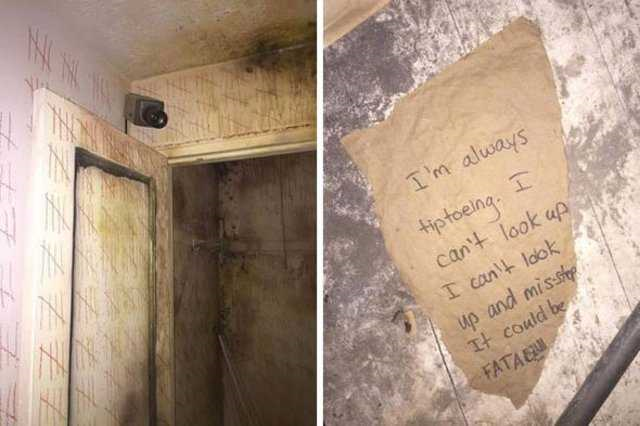 I'm always
tiptoeing. I
can't look up
I can't look
up and misstep
It could be
FATAL!!!